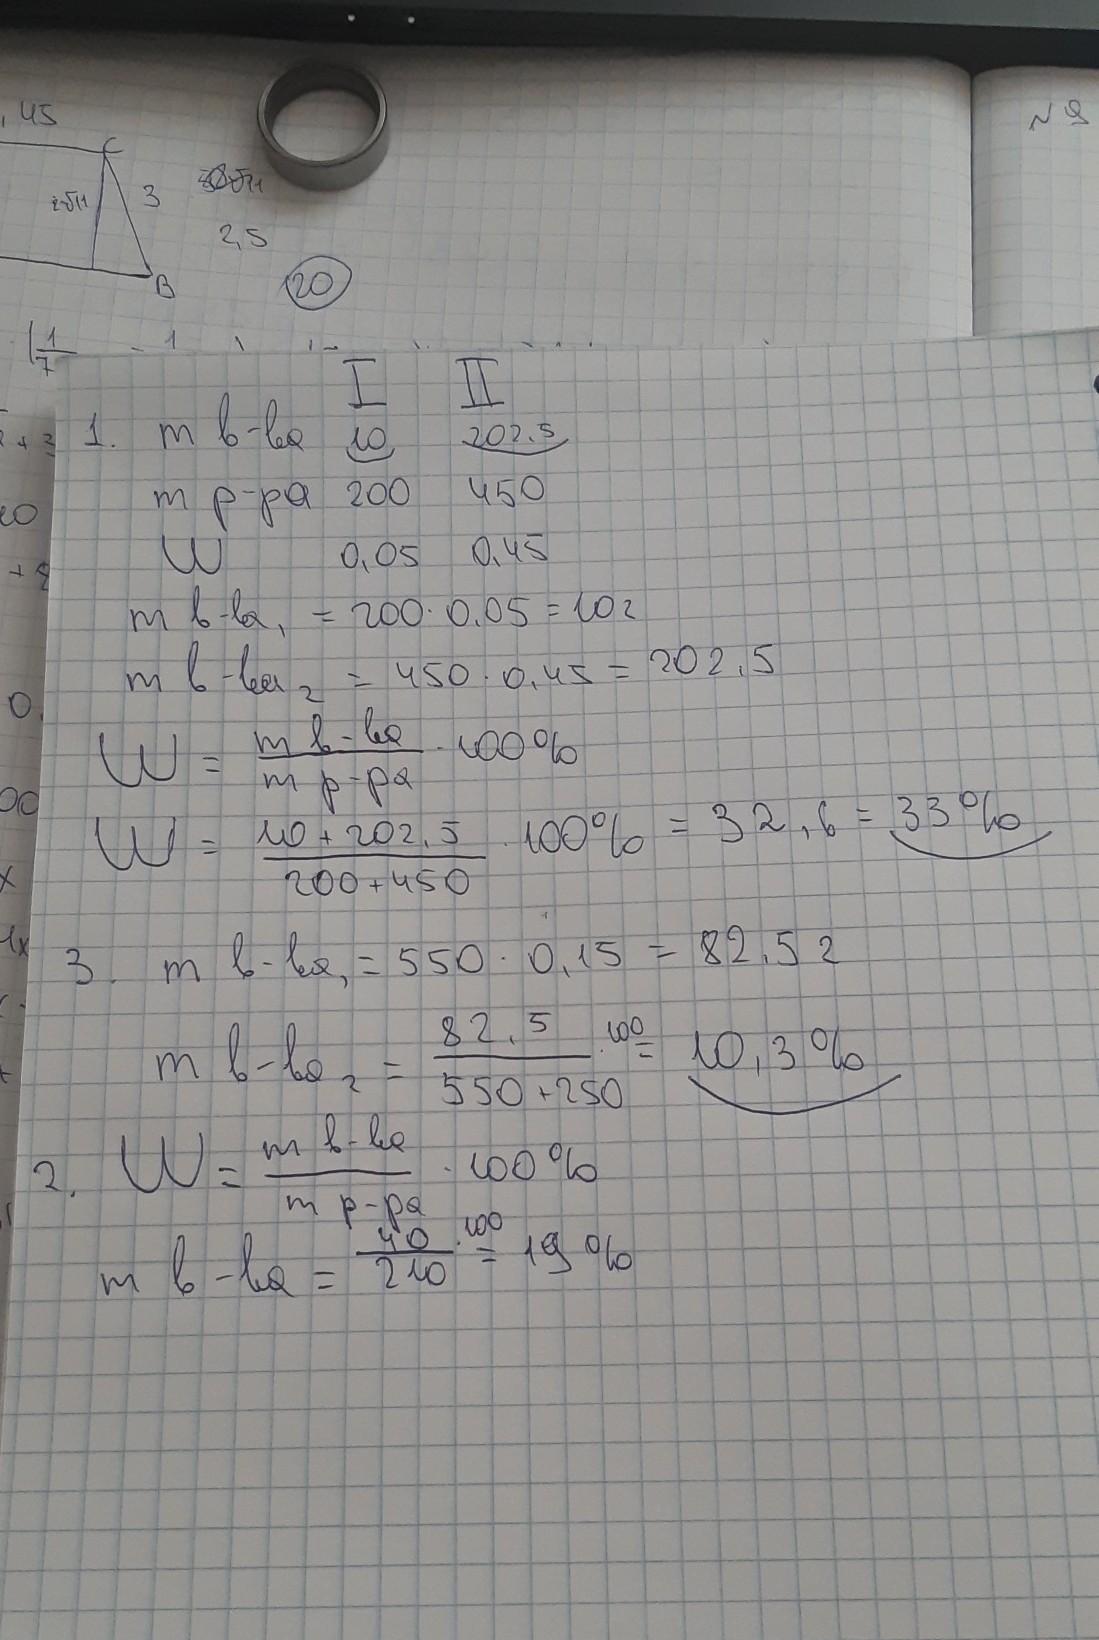 , 45
C
N 9
3
2,5
B
20
1/7 - 1
I II
1. m в-ва 10 202.5
m р-ра 200 450
W 0,05 0,45
m в-ва₁ = 200 · 0.05 = 10г
m в-ва₂ = 450 · 0,45 = 202,5
W = m в-ва / m р-ра · 100%
W = 10 + 202,5 / 200 + 450 · 100% = 32,6 = 33%
3. m в-ва₁ = 550 · 0,15 = 82,5 г
m в-ва₂ = 82,5 / 550 + 250 · 100 = 10,3%
2. W = m в-ва / m р-ра · 100%
m в-ва = 40 / 210 · 100 = 19%